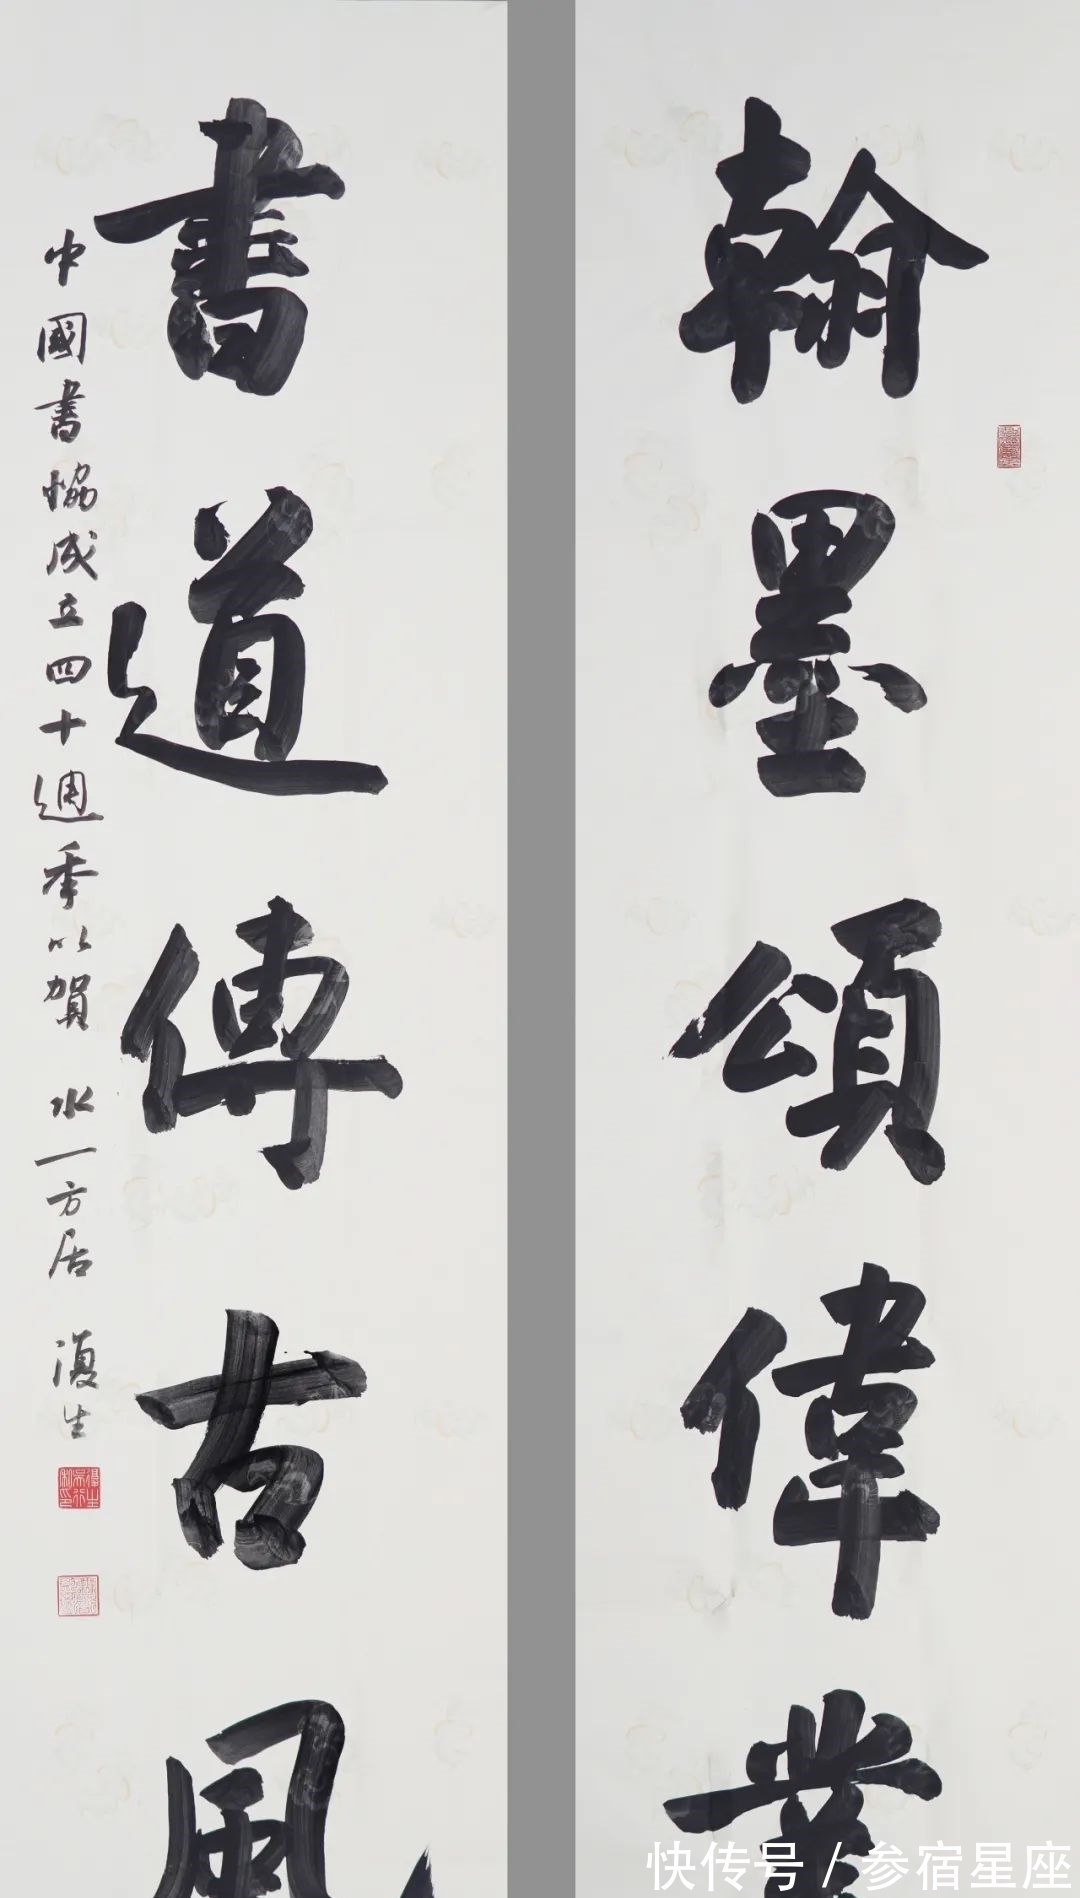 翰墨頌偉業
書道傳古風
中國書協成立四十週季以賀 水一方居 復生
快传号 / 参宿星座